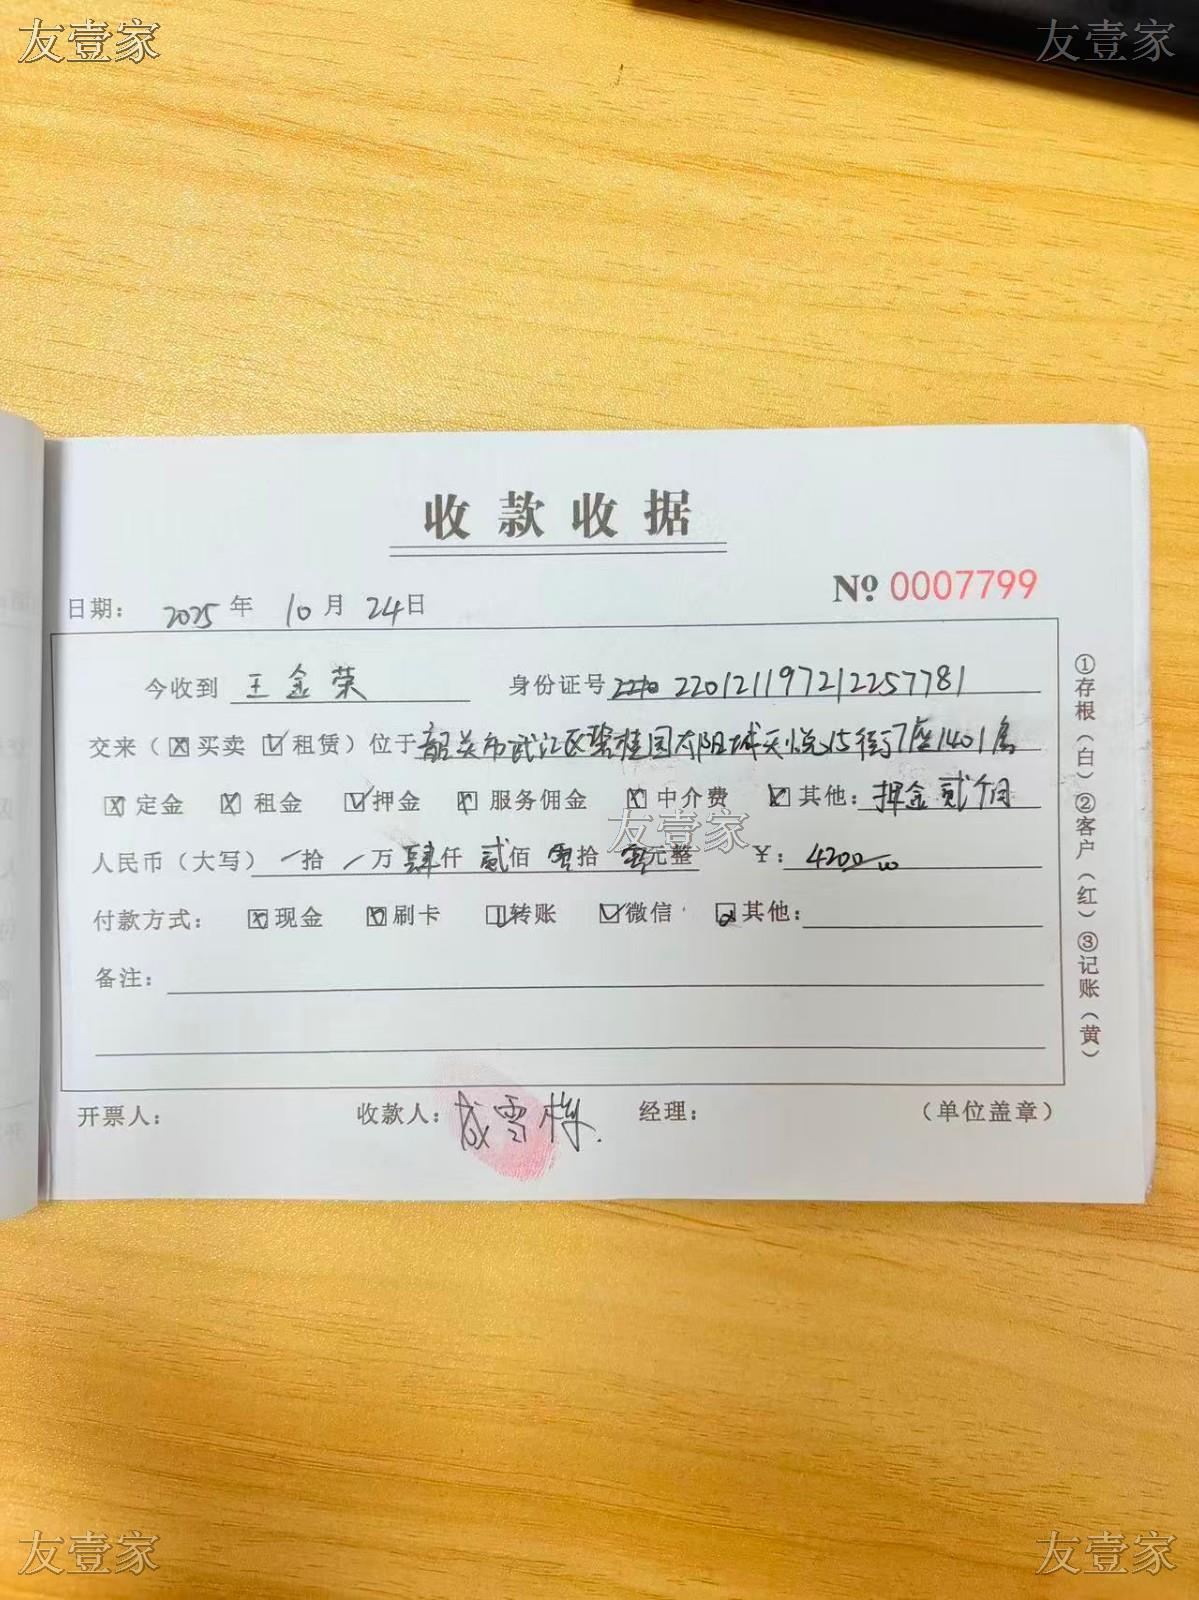 友壹家 友壹家
收款收据
№ 0007799
日期： 2025 年 10 月 24 日
今收到 王金荣 身份证号 220121197212257781
交来（☒买卖 ☑租赁）位于 韶关市武江区碧桂园太阳城天悦15街7座1401房
☒定金 ☒租金 ☑押金 ☒服务佣金 ☒中介费 ☑其他：押金贰个月
人民币（大写） / 拾 / 万 肆 仟 贰 佰 零 拾 零 元整 ￥：4200.00
友壹家
付款方式： ☒现金 ☒刷卡 ☑转账 ☑微信 其他：
备注：
开票人： 收款人： 经理： （单位盖章）
①存根（白）②客户（红）③记账（黄）
友壹家 友壹家